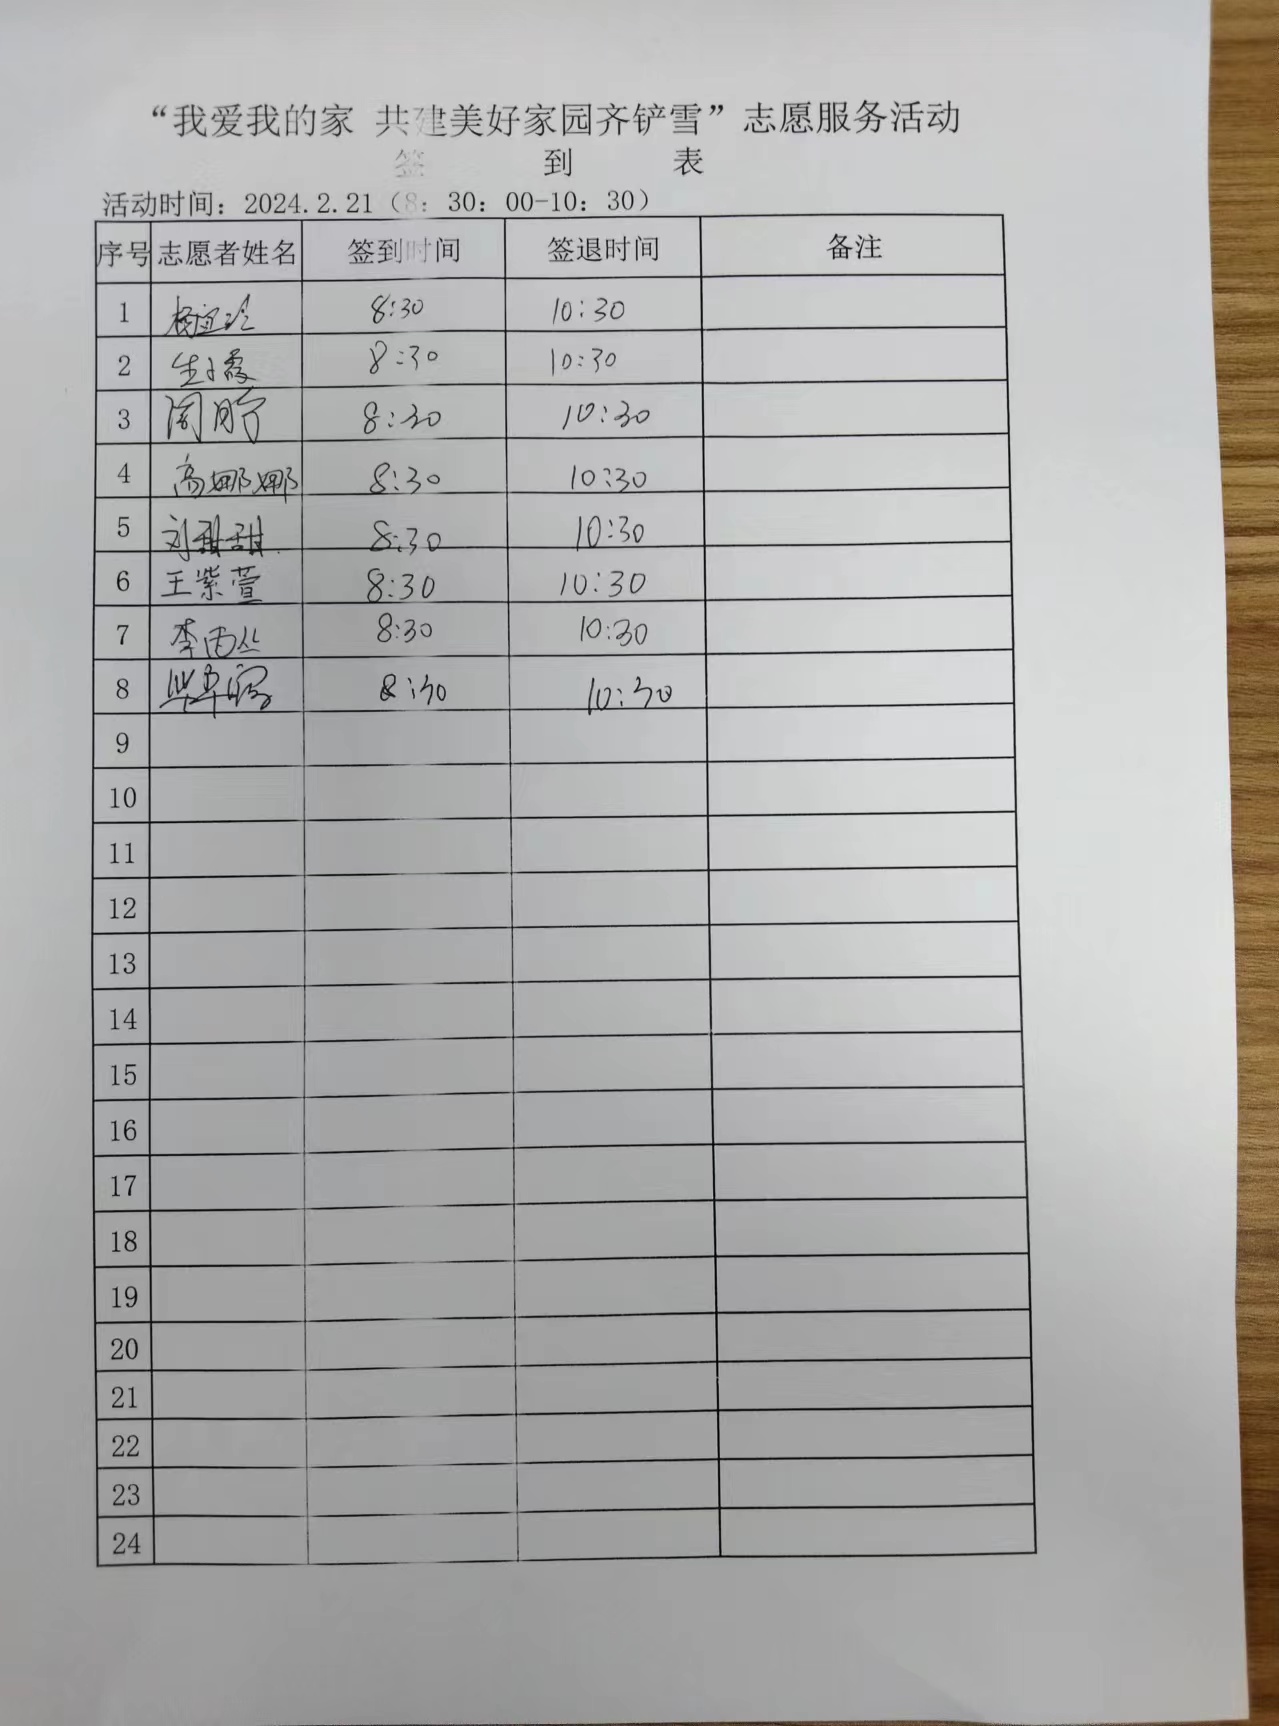 “我爱我的家 共建美好家园齐铲雪”志愿服务活动
签 到 表
活动时间：2024.2.21（8：30：00-10：30）
序号 志愿者姓名 签到时间 签退时间 备注
1 8:30 10:30
2 8:30 10:30
3 8:30 10:30
4 高娜娜 8:30 10:30
5 刘甜甜 8:30 10:30
6 王紫萱 8:30 10:30
7 李雨丛 8:30 10:30
8 8:30 10:30
9
10
11
12
13
14
15
16
17
18
19
20
21
22
23
24